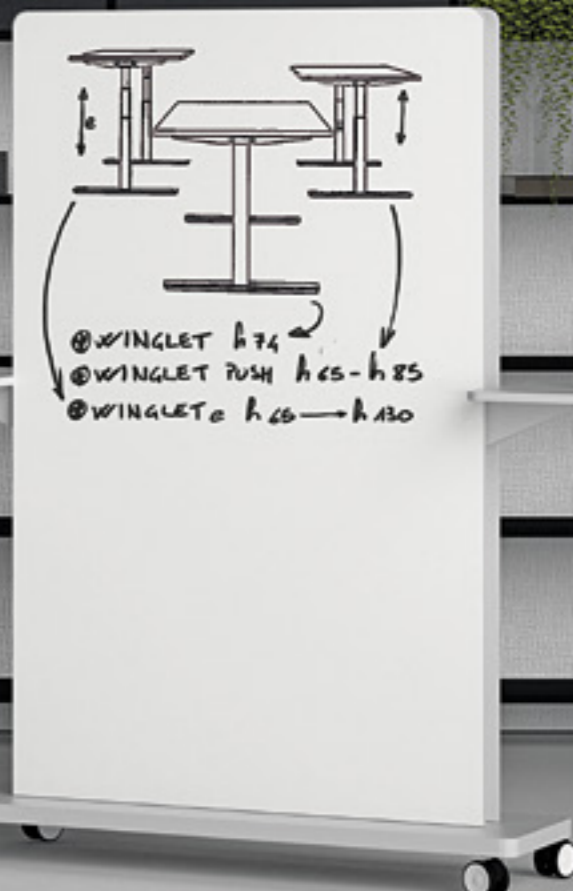 e
⊗ WINGLET h 74
⊗ WINGLET PUSH h 65 - h 85
⊗ WINGLET e h 65 → h 130